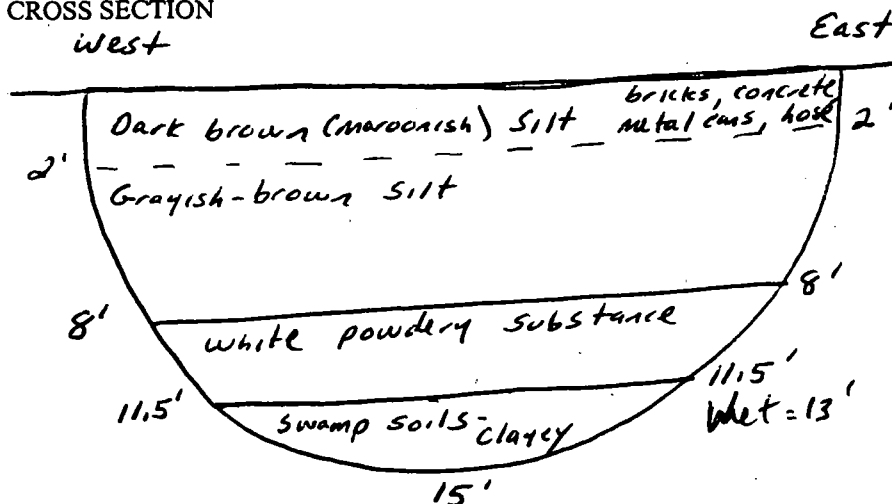 CROSS SECTION
West East
Dark brown (maroonish) silt bricks, concrete
metal cans, hose
2' 2'
Grayish-brown silt
8' 8'
white powdery substance
11.5' 11.5'
swamp soils-clayey Wet = 13'
15'